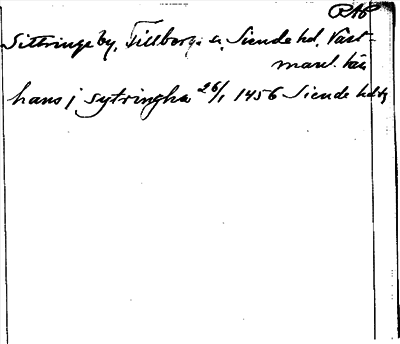 RAP
Sittringe by, Tillberga sn, Siende hd, Väst-
manl. län
hans j sytringha 26/1 1456 Siende hdtg